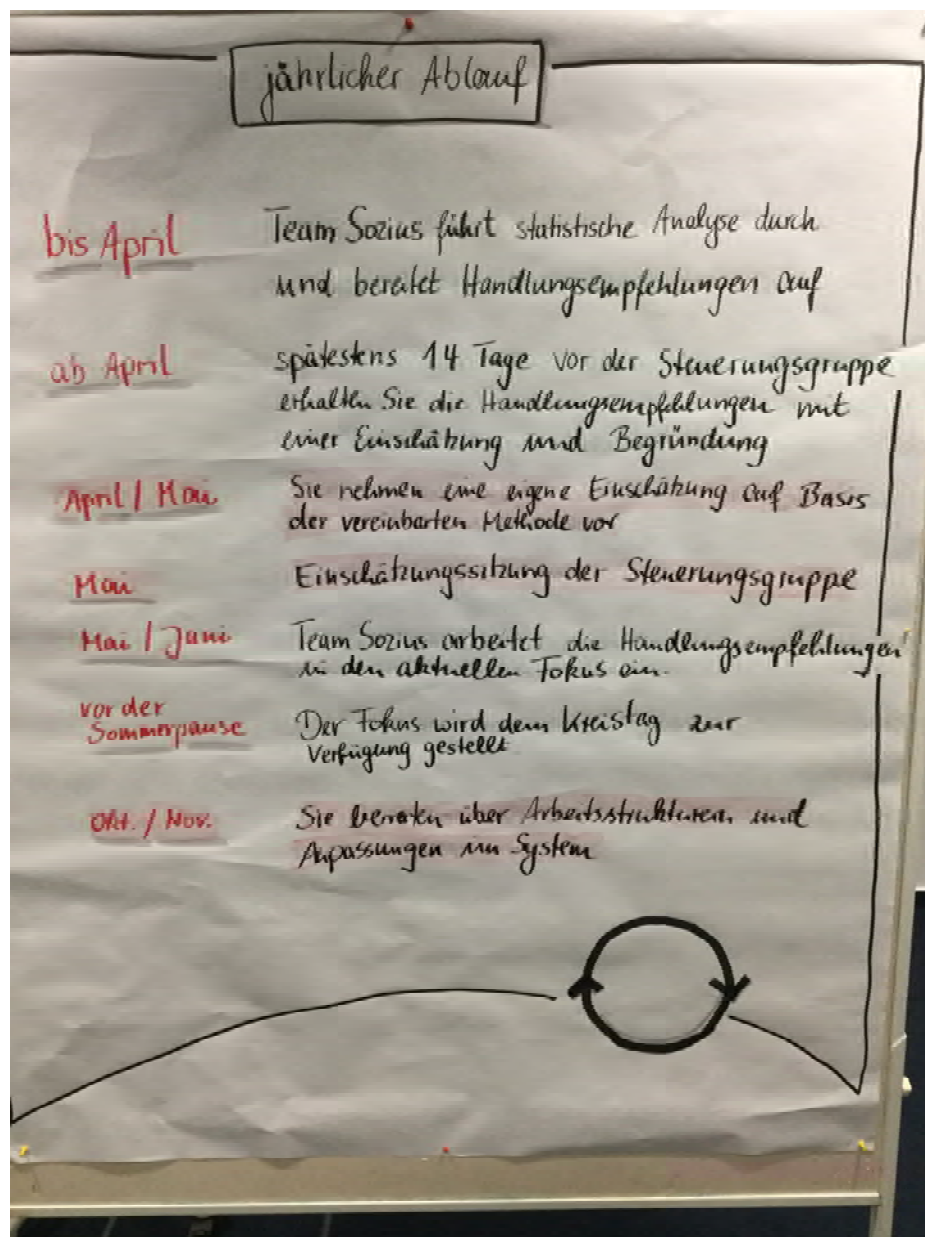 jährlicher Ablauf
bis April
Team Sozius führt statistische Analyse durch
und bereitet Handlungsempfehlungen auf
ab April
spätestens 14 Tage vor der Steuerungsgruppe
erhalten Sie die Handlungsempfehlungen mit
einer Einschätzung und Begründung
April / Mai
Sie nehmen eine eigene Einschätzung auf Basis
der vereinbarten Methode vor
Mai
Einschätzungssitzung der Steuerungsgruppe
Mai / Juni
Team Sozius arbeitet die Handlungsempfehlungen
in den aktuellen Fokus ein.
vor der
Sommerpause
Der Fokus wird dem Kreistag zur
Verfügung gestellt
Okt. / Nov.
Sie beraten über Arbeitsstrukturen und
Anpassungen im System